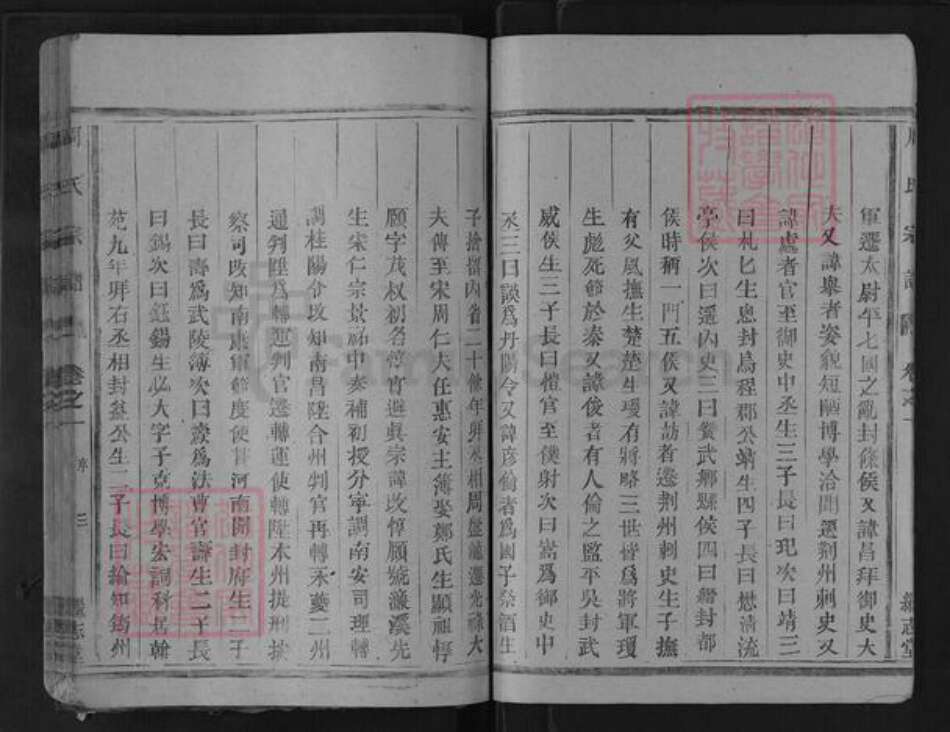 軍遷太尉平七國之亂封條侯又諱昌拜御史大
夫又諱舉者姿貌短陋博學洽聞遷荆州刺史又
諱處者官至御史中丞生三子長曰玘次曰靖三
曰札玘生勰封烏程郡公靖生四子長曰懋清流
亭侯次曰遷內史三曰贊武鄉縣侯四曰縉封都
侯時稱一門五侯又諱訪者遷荆州刺史生子撫
有父風撫生楚楚生瓊有將略三世皆爲將軍瓊
生虓死節於秦又諱俊者有人倫之監平吳封武
威侯生三子長曰愷官至僕射次曰嵩爲御史中
丞三曰謨爲丹陽令又諱彥倫者爲國子祭酒生
子捨掌內省二十餘年拜丞相周盤瀘遷光祿大
夫傳至宋周仁夫任惠安主簿娶鄭氏生顯祖惇
願字茂叔初名惇實避眞宗諱改惇願號濂溪先
生宋仁宗景祐中奏補初授分寧調南安司理轉
調桂陽令改知南昌陞合州判官再轉永夔二州
通判陞爲轉運判官遷轉運使轉陞本州提刑按
察司改知南康軍節度使甘河南開封府生二子
長曰壽爲武陵簿次曰燾爲法曹官壽生二子長
曰錫次曰鈺錫生必大字子充博學宏詞科名翰
苑九年拜右丞相封益公生二子長曰綸知衢州
周氏宗譜 卷之一 三 繼志堂